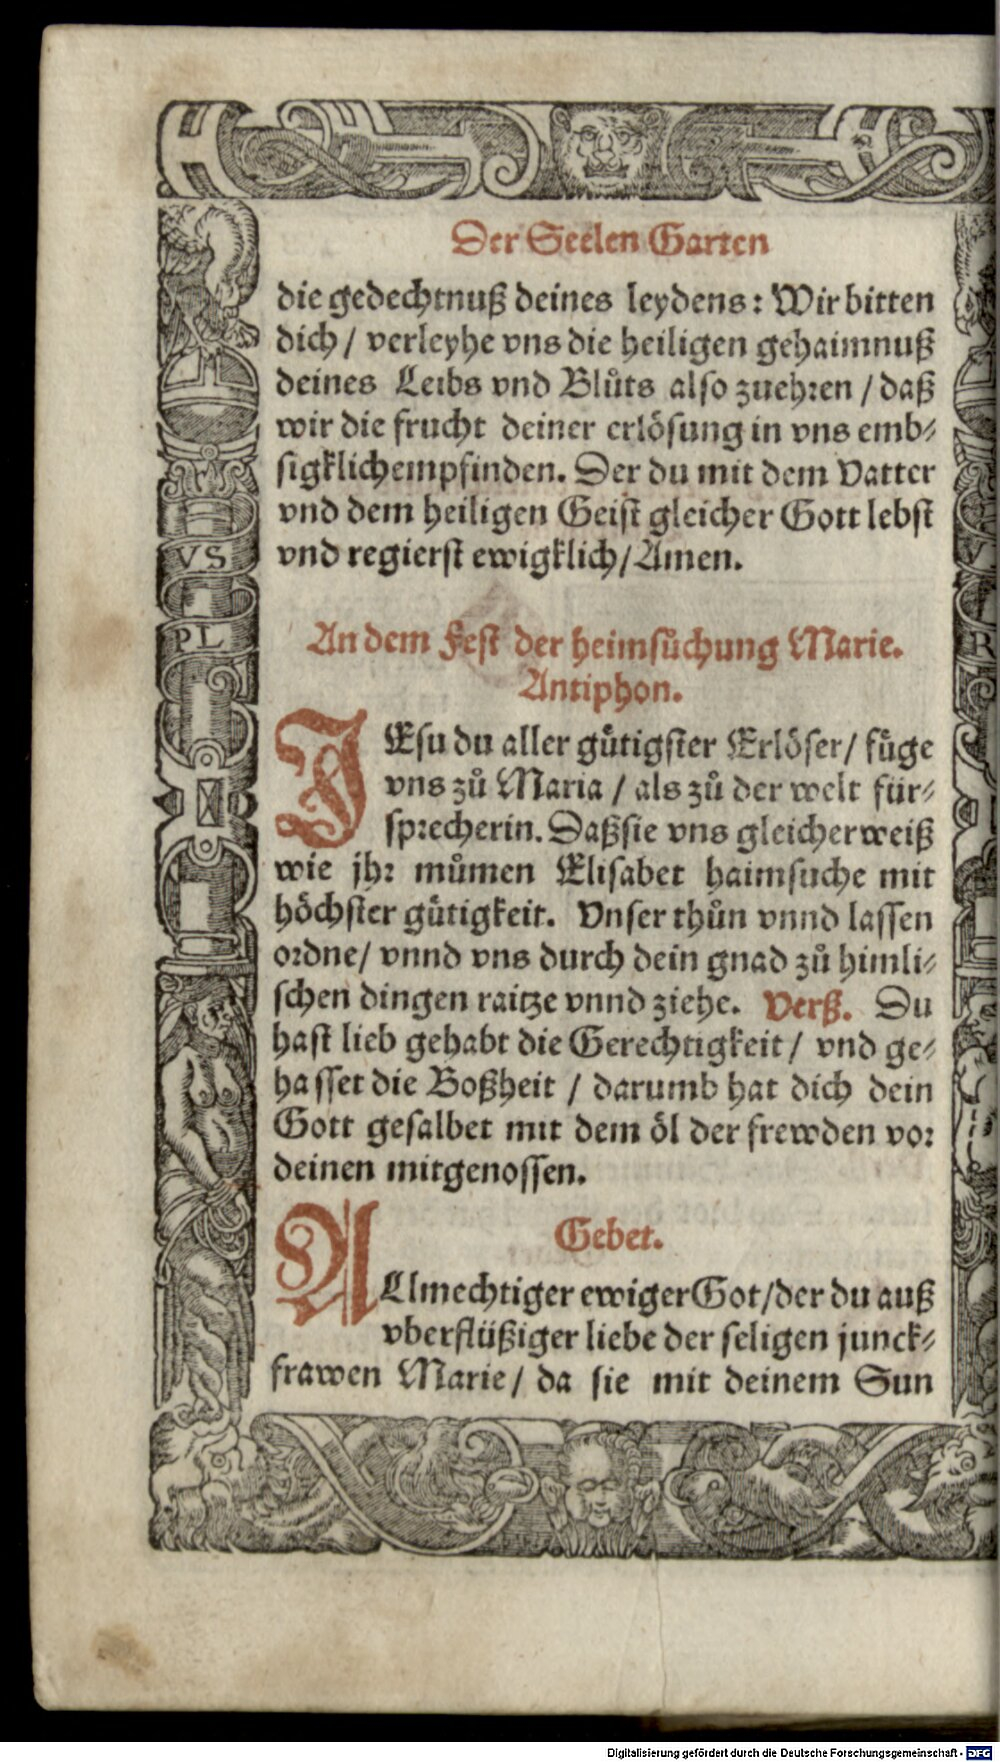 Der Seelen Garten
die gedechtnuß deines leydens: Wir bitten
dich / verleyhe vns die heiligen gehaimnuß
deines Leibs vnd Blůts also zuehren / daß
wir die frucht deiner erlösung in vns emb⸗
sigklich empfinden. Der du mit dem Vatter
vnd dem heiligen Geist gleicher Gott lebst
vnd regierst ewigklich / Amen.
An dem Fest der heimsůchung Marie.
Antiphon.
JEsu du aller gütigster Erlöser / füge
vns zů Maria / als zů der welt für⸗
sprecherin. Daß sie vns gleicher weiß
wie jhr můmen Elisabet haimsuche mit
höchster gütigkeit. Vnser thůn vnnd lassen
ordne / vnnd vns durch dein gnad zů himli⸗
schen dingen raitze vnnd ziehe. Verß. Du
hast lieb gehabt die Gerechtigkeit / vnd ge⸗
hasset die Boßheit / darumb hat dich dein
Gott gesalbet mit dem öl der frewden vor
deinen mitgenossen.
Gebet.
ALlmechtiger ewiger Got / der du auß
vberflüßiger liebe der seligen junck⸗
frawen Marie / da sie mit deinem Sun
VS
PL
V
R
Digitalisierung gefördert durch die Deutsche Forschungsgemeinschaft - DFG